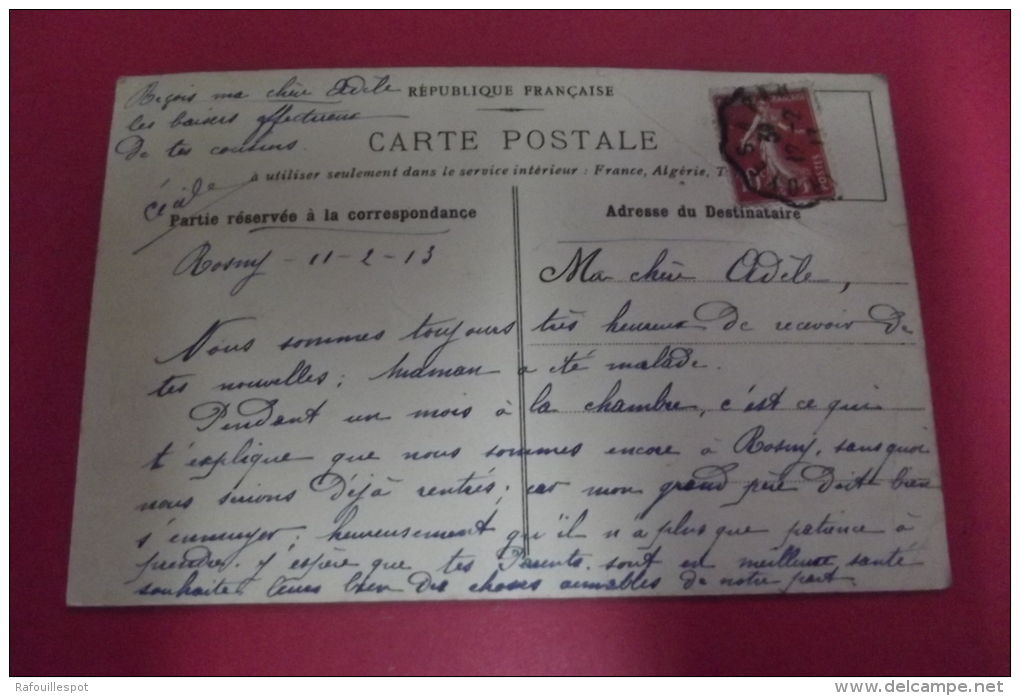 Reçois ma chère Adèle
les baisers affectueux
de tes cousins.
Cécile
RÉPUBLIQUE FRANÇAISE
CARTE POSTALE
à utiliser seulement dans le service intérieur : France, Algérie, T
Partie réservée à la correspondance
Adresse du Destinataire
POSTES
Rosny - 11-2-13
Ma chère Adèle,
Nous sommes toujours très heureux de recevoir de
tes nouvelles ; maman a été malade.
Pendant un mois à la chambre, c'est ce qui
t'explique que nous sommes encore à Rosny, sans quoi
nous serions déjà rentrés ; car mon grand père doit bien
s'ennuyer, heureusement qu'il n'a plus que patience à
prendre. J'espère que tes Parents sont en meilleure santé
souhaite leurs bien des choses aimables de notre part.
Rafouillespot
www.delcampe.net